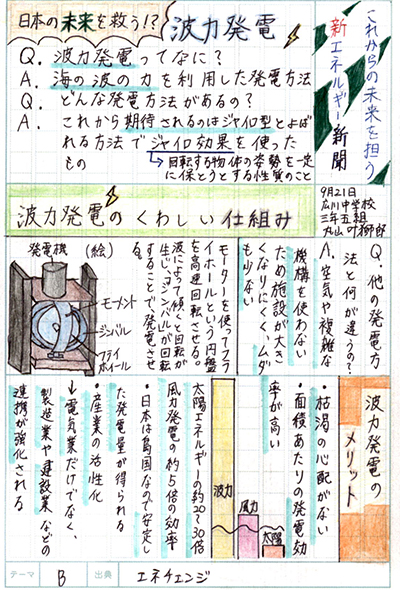 これからの未来を担う
新エネルギー新聞
日本の未来を救う!?
波力発電
Q. 波力発電ってなに？
A. 海の波の力を利用した発電方法
Q. どんな発電方法があるの？
A. これから期待されるのはジャイロ型とよば
れる方法でジャイロ効果を使った
もの
→回転する物体の姿勢を一定
に保とうとする性質のこと
9月21日
広川中学校
三年五組
丸山 叶獅郎
波力発電のくわしい仕組み
Q.他の発電方
法と何が違うの？
A.空気や複雑な
機構を使わない
ため施設が大き
くなりにくくムダ
も少ない
モーターを使ってフラ
イホールという円盤
を高速回転させる。
波によって傾くと回転が
生じ、ジンバルが回転
することで発電させ
る
発電機 (絵)
モーメント
ジンバル
フライ
ホイール
波力発電の
メリット
・枯渇の心配がない
・面積あたりの発電効
率が高い
波力
風力
太陽
太陽エネルギーの約20〜30倍
風力発電の約5倍の効率
・日本は島国なので安定し
た発電量が得られる
・産業の活性化
→電気業だけでなく、
製造業や建設業などの
連携が強化される
テーマ
B
出典
エネチェンジ